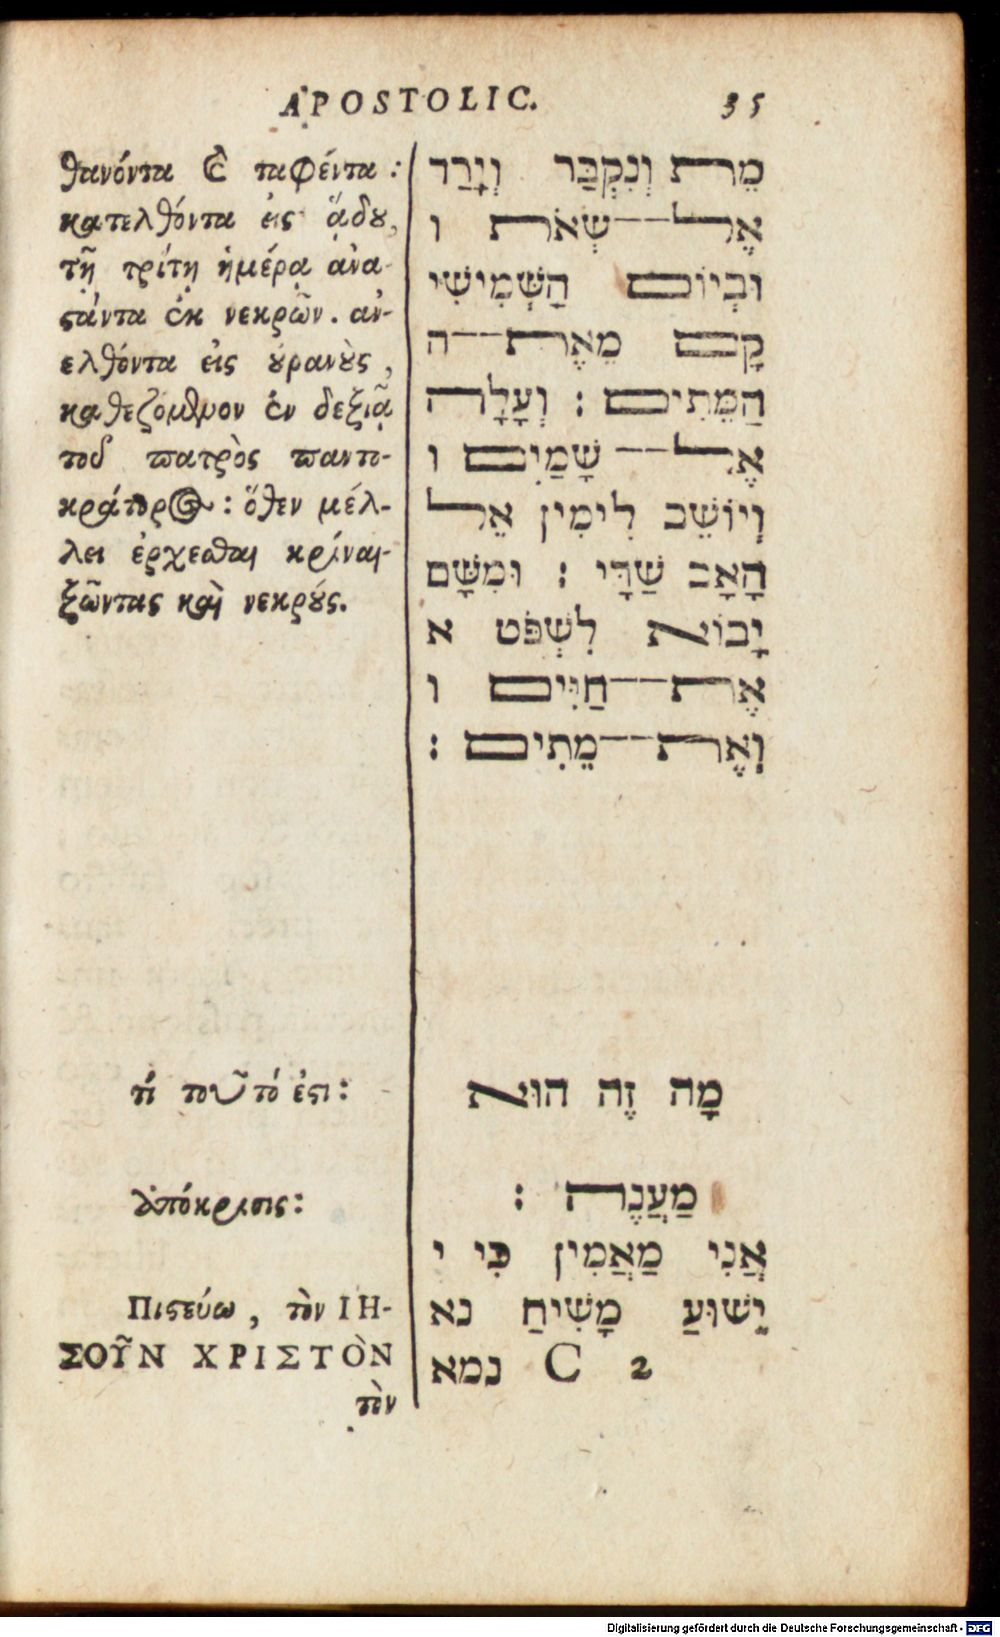 APOSTOLIC. 35
θανόντα ϗ ταφέντα :
κατελθόντα εἰς ᾅδου,
τῇ τρίτῃ ἡμέρᾳ ἀνα-
ϛάντα ἐκ νεκρῶν. ἀν-
ελθόντα εἰς οὐρανοὺς,
καθεζόμενον ἐν δεξιᾷ
τοῦ πατρὸς παντο-
κράτορος : ὅθεν μέλ-
λει ἔρχεσθαι κρίναι
ζῶντας καὶ νεκρούς.
τί τοῦτό ἐϛι :
ἀπόκρισις :
Πιϛεύω, τὸν ΙΗ-
ΣΟΥ͂Ν ΧΡΙΣΤΟ`Ν
τὸν
מֵת וְנִקְבַּר וְיָרַד
אֶל־־שְׁאֹת ו
וּבְיוֹם הַשְּׁמִישִׁי
קָם מֵאֶת־־ה
הַמֵּתִים : וְעָלָה
אֶל־־שָׁמַיִם ו
וְיוֹשֵׁב לִימִין אֵל
הָאָב שַׁדָּי : וּמִשָּׁם
יָבוֹא לִשְׁפֹּט א
אֶת־־חַיִּים ו
וְאֶת־־מֵתִים :
מָה זֶה הוּא
מַעֲנֶה :
אֲנִי מַאֲמִין כִּי י
יֵשׁוּעַ מָשִׁיחַ נא
נמא C 2
Digitalisierung gefördert durch die Deutsche Forschungsgemeinschaft - DFG